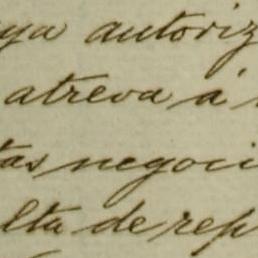 ya autoriz
atreva á
tas negoci
lta de rep